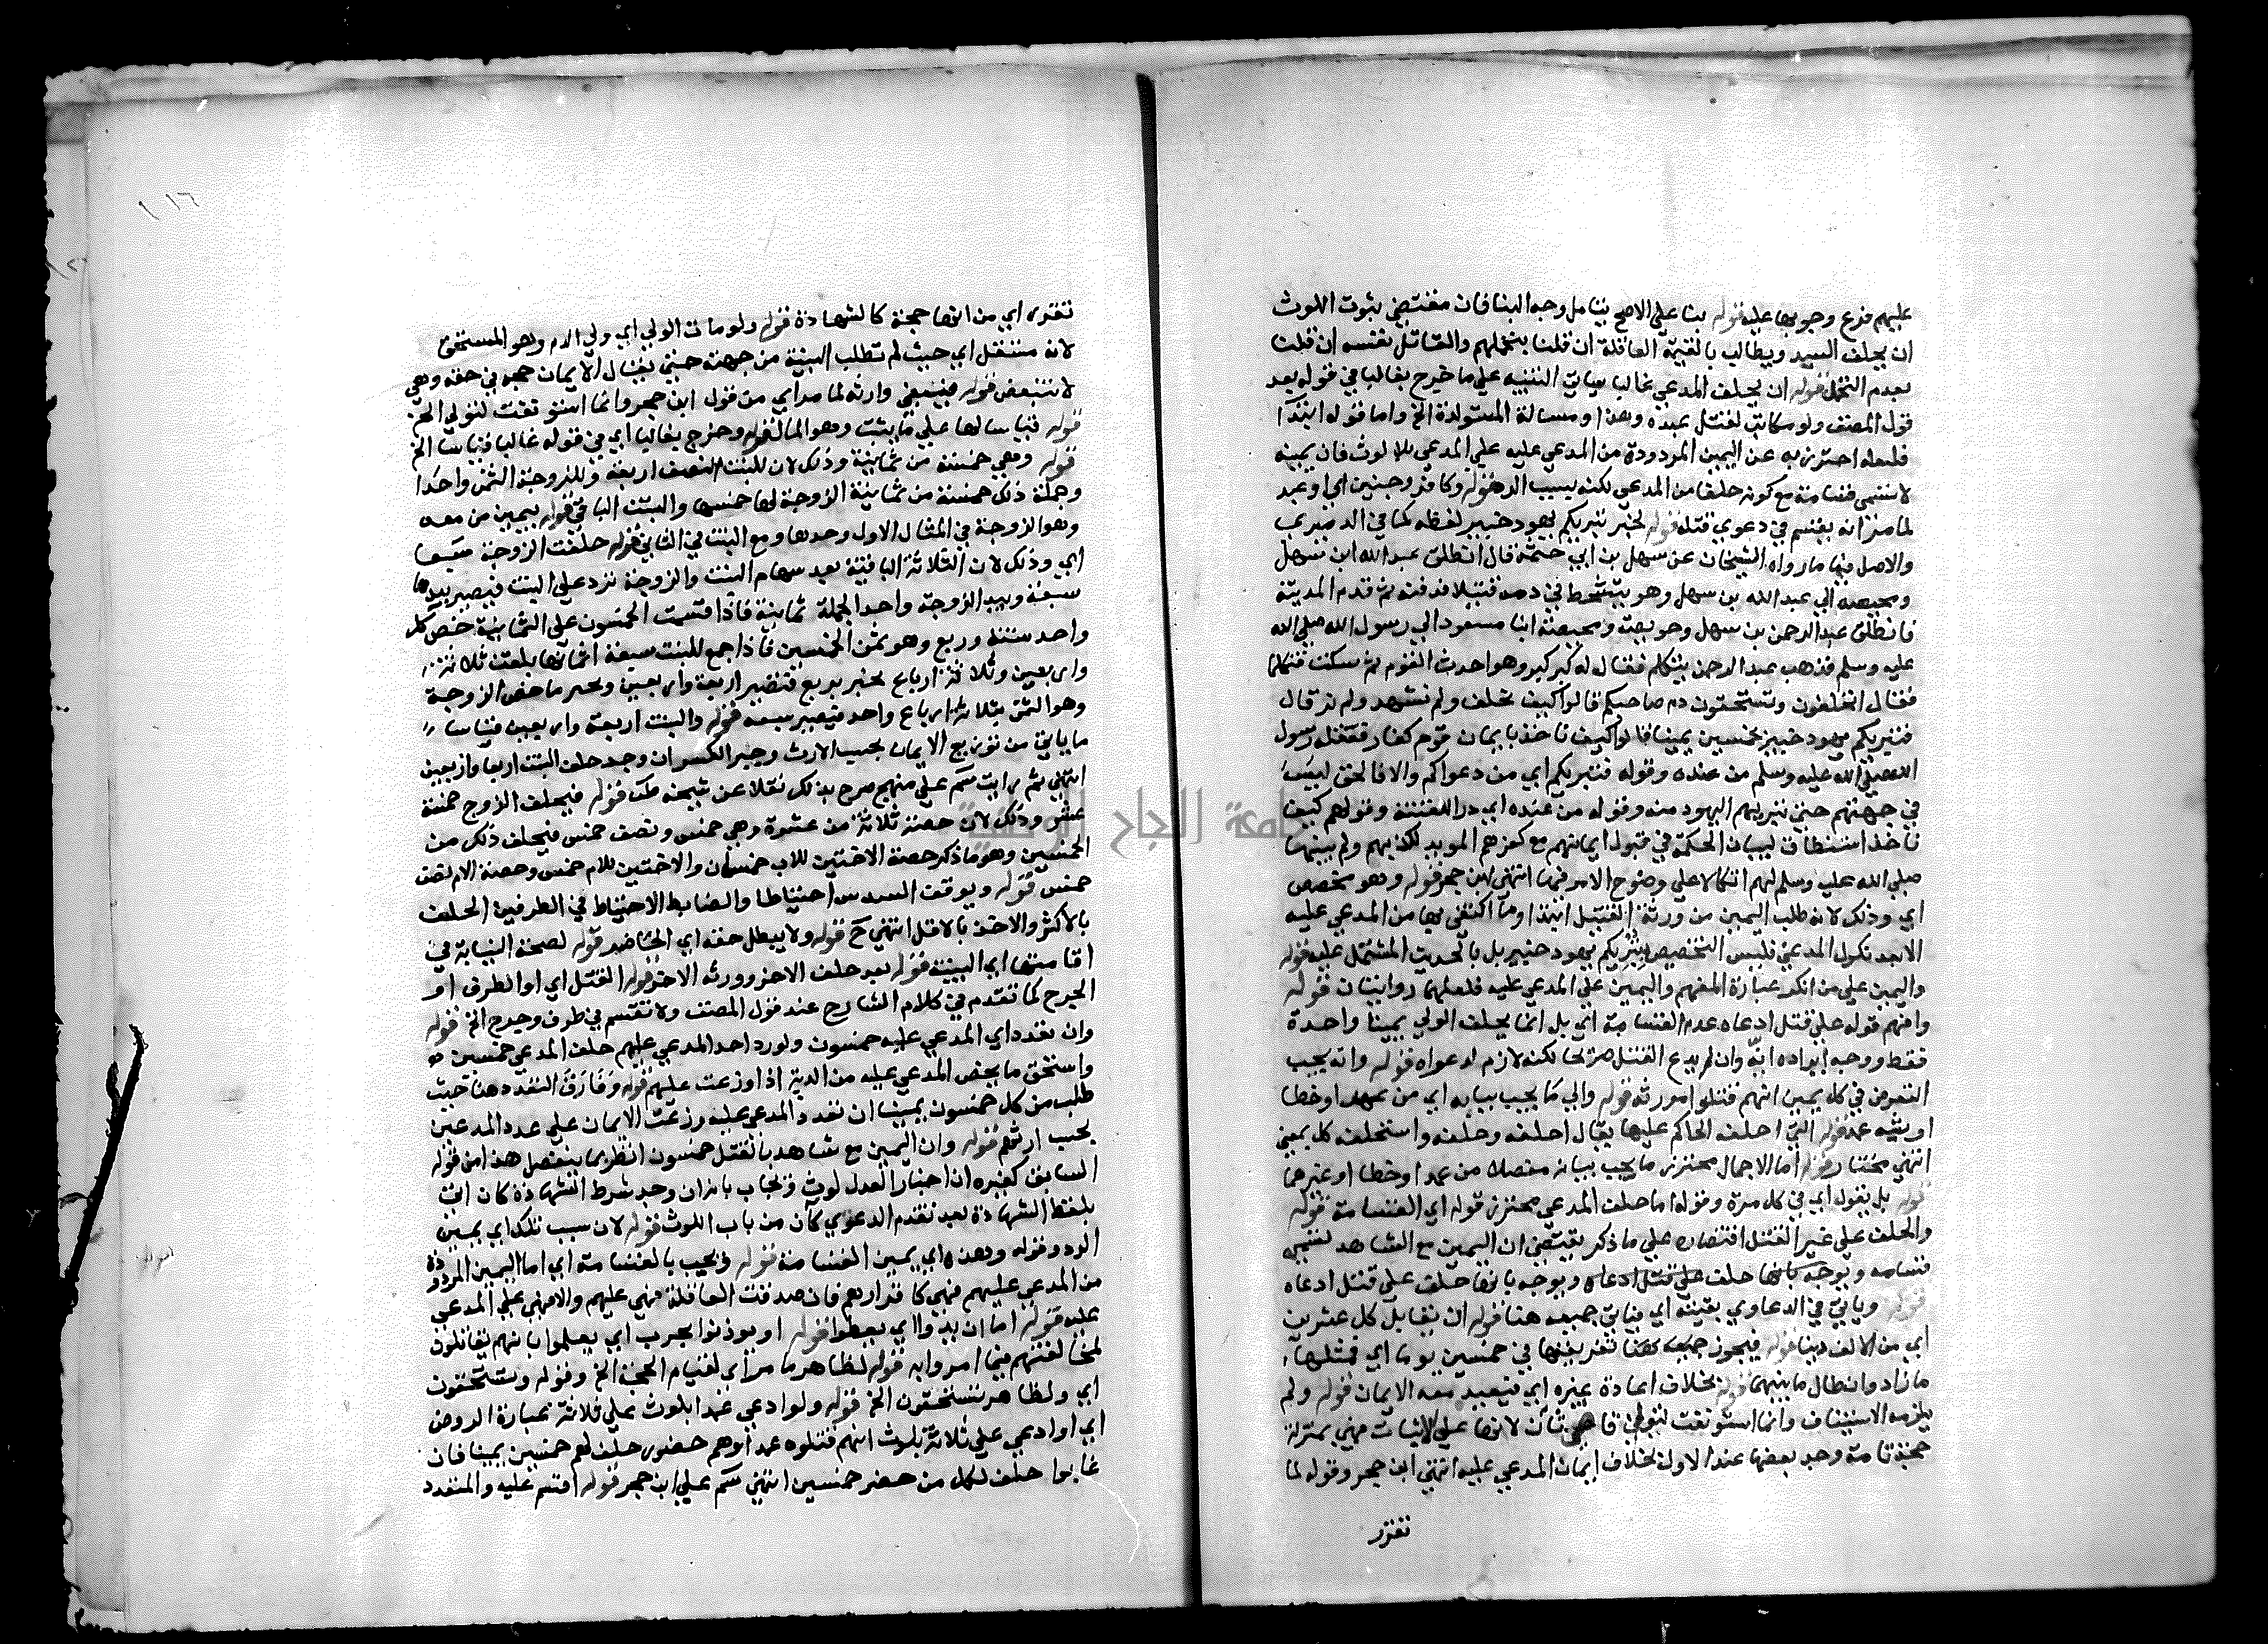 عليهم فرع وجوبها عليه قوله بنا علي الاصح يتامل وجه البنا فان مقتضي ثبوت اللوث
ان يحلف السيد ويطالب بالقيمة العاقلة ان قلنا بتحملهم والقاتل نفسه ان قلنا
بعدم التحمل قوله ان يحلف المدعي غالبا ياتي التنبيه علي ما خرج بغالبا في قوله بعد
قول المصنف ولو مكاتب لقتل عبده وهذا ومسالة المستولدة الخ واما قوله ابتدا
فلعله احترز به عن اليمين المردودة من المدعي عليه علي المدعي بلا لوث فان يمينه
لا تسمي قسامة مع كونه حلفا من المدعي لكنه بسبب الرد قوله وكافر وجنين اي او عبد
لما مر انه يقسم في دعوي قتله قوله لخبر تبريكم يهود خيبر لفظه كما في الدميري
والاصل فيها ما رواه الشيخان عن سهل بن ابي حثمة قال انطلق عبد الله ابن سهل
ومحيصة الي عبد الله بن سهل وهو يتشحط في دمه قتيلا فدفنه ثم قدم المدينة
فانطلق عبد الرحمن بن سهل وحويصة ومحيصة ابنا مسعود الي رسول الله صلي الله
عليه وسلم فذهب عبد الرحمن يتكلم فقال له كبر كبر وهو احدث القوم ثم سكت فتكلما
فقال اتحلفون وتستحقون دم صاحبكم قالوا كيف نحلف ولم نشهد ولم نر قال
فتبريكم يهود خيبر بخمسين يمينا قالوا كيف ناخذ بايمان قوم كفار فعقله رسول
الله صلي الله عليه وسلم من عنده وقوله فتبريكم اي من دعواكم والا فالحق ليس
في جهتهم حتي تبريهم اليهود منه وقوله من عنده اي درا للفتنة وقولهم كيف
ناخذ استنطاق لبيان الحكمة في قبول ايمانهم مع كفرهم المويد لكذبهم ولم يبينها
صلي الله عليه وسلم لهم اتكالا علي وضوح الامر فيها انتهي ابن حجر قوله وهو مخصص
اي وذلك لانه طلب اليمين من ورثة القتيل ابتدا وما اكتفي بها من المدعي عليه
الا بعد نكول المدعي فليس التخصيص بتبريكم يهود خيبر بل بالحديث المشتمل عليه قوله
واليمين علي من انكر عبارة المنهم واليمين علي المدعي عليه فلعلهما روايتان قوله
وافهم قوله علي قتل ادعاه عدم القسامة اي بل انما يحلف الولي يمينا واحدة
فقط ووجه ايراده انه وان لم يدع القتل صريحا لكنه لازم لدعواه قوله وانه يجب
التعرض في كل يمين انهم قتلوا مورثه قوله والي ما يجب بيانه اي من عمد او خطا
او شبه عمد قوله التي احلفه الحاكم عليها يقال احلفه وحلفه واستحلفه كل بمعني
انتهي مختار قوله اما الاجمال محترز ما يجب بيانه مفصلا من عمد او خطا او غيرهما
قوله بل يقول اي في كل مرة وقوله اما حلف المدعي محترز قوله اي القسامة قوله
والحلف علي غير القتل اقتصاره علي ما ذكر يقتضي ان اليمين مع الشاهد تسمي
قسامه ويوجه بانها حلف علي قتل ادعاه ويوجه بانها حلف علي قتل ادعاه
قوله وياتي في الدعاوي بقيته اي فياتي جميعه هنا قوله ان يقابل كل عشرين
اي من الالف دينار قوله فيجوز جميعه كهنا تفريقها في خمسين يوما اي فمثلها
ما زاد وان طال ما بينهما قوله بخلاف اعادة غيره اي فيعيد معه الايمان قوله ولم
يلزمه الاستيناف وانما استونفت لتولي قاضي ثان لانها علي الاثبات فهي بمنزلة
حجة تامة وجد بعضها عند الاول بخلاف ايمان المدعي عليه انتهي ابن حجر وقوله لما
تقرر
تقرر اي من انها حجة كالشهادة قوله ولو مات الولي اي ولي الدم وهو المستحق
لانه مستقل اي حيث لم تطلب البينة من جهته حتي يقال الايمان حجه في حقه وهي
لا تتبعض قوله فيبني وارثه لما مر اي من قول ابن حجر وانما استونفت لتولي الخ
قوله قياسا لها علي ما يثبت وهو المال قوله وخرج بغالبا اي في قوله غالبا قياسا الخ
قوله وهي خمسة من ثمانية وذلك لان للبنت النصف اربعة وللزوجة الثمن واحدا
وجملة ذلك خمسة من ثمانية الزوجة لها خمسها والبنت الباقي قوله بيمين من معه
وهو الزوجة في المثال الاول وحدها ومع البنت في الثاني قوله حلفت الزوجة سبعا
اي وذلك لان الثلاثة الباقية بعد سهام البنت والزوجة ترد علي البنت فيصير بيدها
سبعة وبيد الزوجة واحد الجملة ثمانية فاذا قسمت الخمسون علي الثمانية خص كل
واحد ستة وربع وهو ثمن الخمسين فاذا جمع للبنت سبعة اثمانها بلغت ثلاثة
واربعين وثلاثة ارباع يجبر بربع فتصير اربعة واربعين ويجبر ما خص الزوجة
وهو الثمن بثلاثة ارباع واحد فيصير سبعه قوله والبنت اربعة واربعين قياسا
ما ياتي من توزيع الايمان بحسب الارث وجبر الكسر ان وجد حلف البنت اربعا واربعين
انتهي ثم رايت سم علي منهج صرح بذلك نقلا عن شيخه طب قوله فيحلف الزوج خمسة
عشر وذلك لان حصته ثلاثة من عشرة وهي خمس ونصف خمس فيحلف ذلك من
الخمسين وهو ما ذكر حصة الاختين للاب خمسان والاختين للام خمس وحصة الام نصف
خمس قوله ويوقف السدس احتياطا والضابط الاحتياط في الطرفين الحلف
بالاكثر والاخذ بالاقل انتهي حج قوله ولا يبطل حقه اي الحاضر قوله لصحة النيابة في
اقامتها اي البينة قوله بعد حلف الاخر وورثه الاخر قوله القتل اي او الطرف او
الجرح كما تقدم في كلام الشارح عند قول المصنف ولا تقسم في طرف وجرح الخ قوله
وان تعدد اي المدعي عليه خمسون ولو رد احد المدعي عليهم حلف المدعي خمسين
واستحق ما يخص المدعي عليه من الدية اذا وزعت عليهم قوله وفارق التعدد هنا حيث
طلب من كل خمسون يمينا ان تعدد المدعي عليه وزعت الايمان علي عدد المدعين
بحسب ارثهم قوله وان اليمين مع شاهد بالقتل خمسون انظر بما ينفصل هذا من قوله
السابق كغيره ان اخبار العدل لوث ويجاب بانه ان وجد شرط الشهادة كان اتي
بلفظ الشهادة بعد تقدم الدعوي كان من باب اللوث قوله لان سبب تلك اي يمين
الرد وقوله وهذه اي يمين القسامة قوله ويجب بالقسامة اي اما اليمين المردودة
من المدعي عليهم فهي كاقرارهم فان صدقت العاقلة فهي عليهم والا فهي علي المدعي
عليه قوله اما ان يدوا اي يعطوا قوله او يوذنوا بحرب اي يعلموا بانهم يقاتلون
لمخالفتهم فيما امروا به قوله لظاهر ما مر اي لقيام الحجة الخ وقوله وتستحقون
اي ولظاهر تستحقون الخ قوله ولو ادعي عمدا بلوث علي ثلاثة عبارة الروض
اي او ادعي علي ثلاثة بلوث انهم قتلوه عمدا وهم حضور حلف لهم خمسين يمينا فان
غابوا حلف لكل من حضر خمسين انتهي سم علي ابن حجر قوله اقسم عليه والمتعدد
جامعة النجاح الوطنية
١١٦